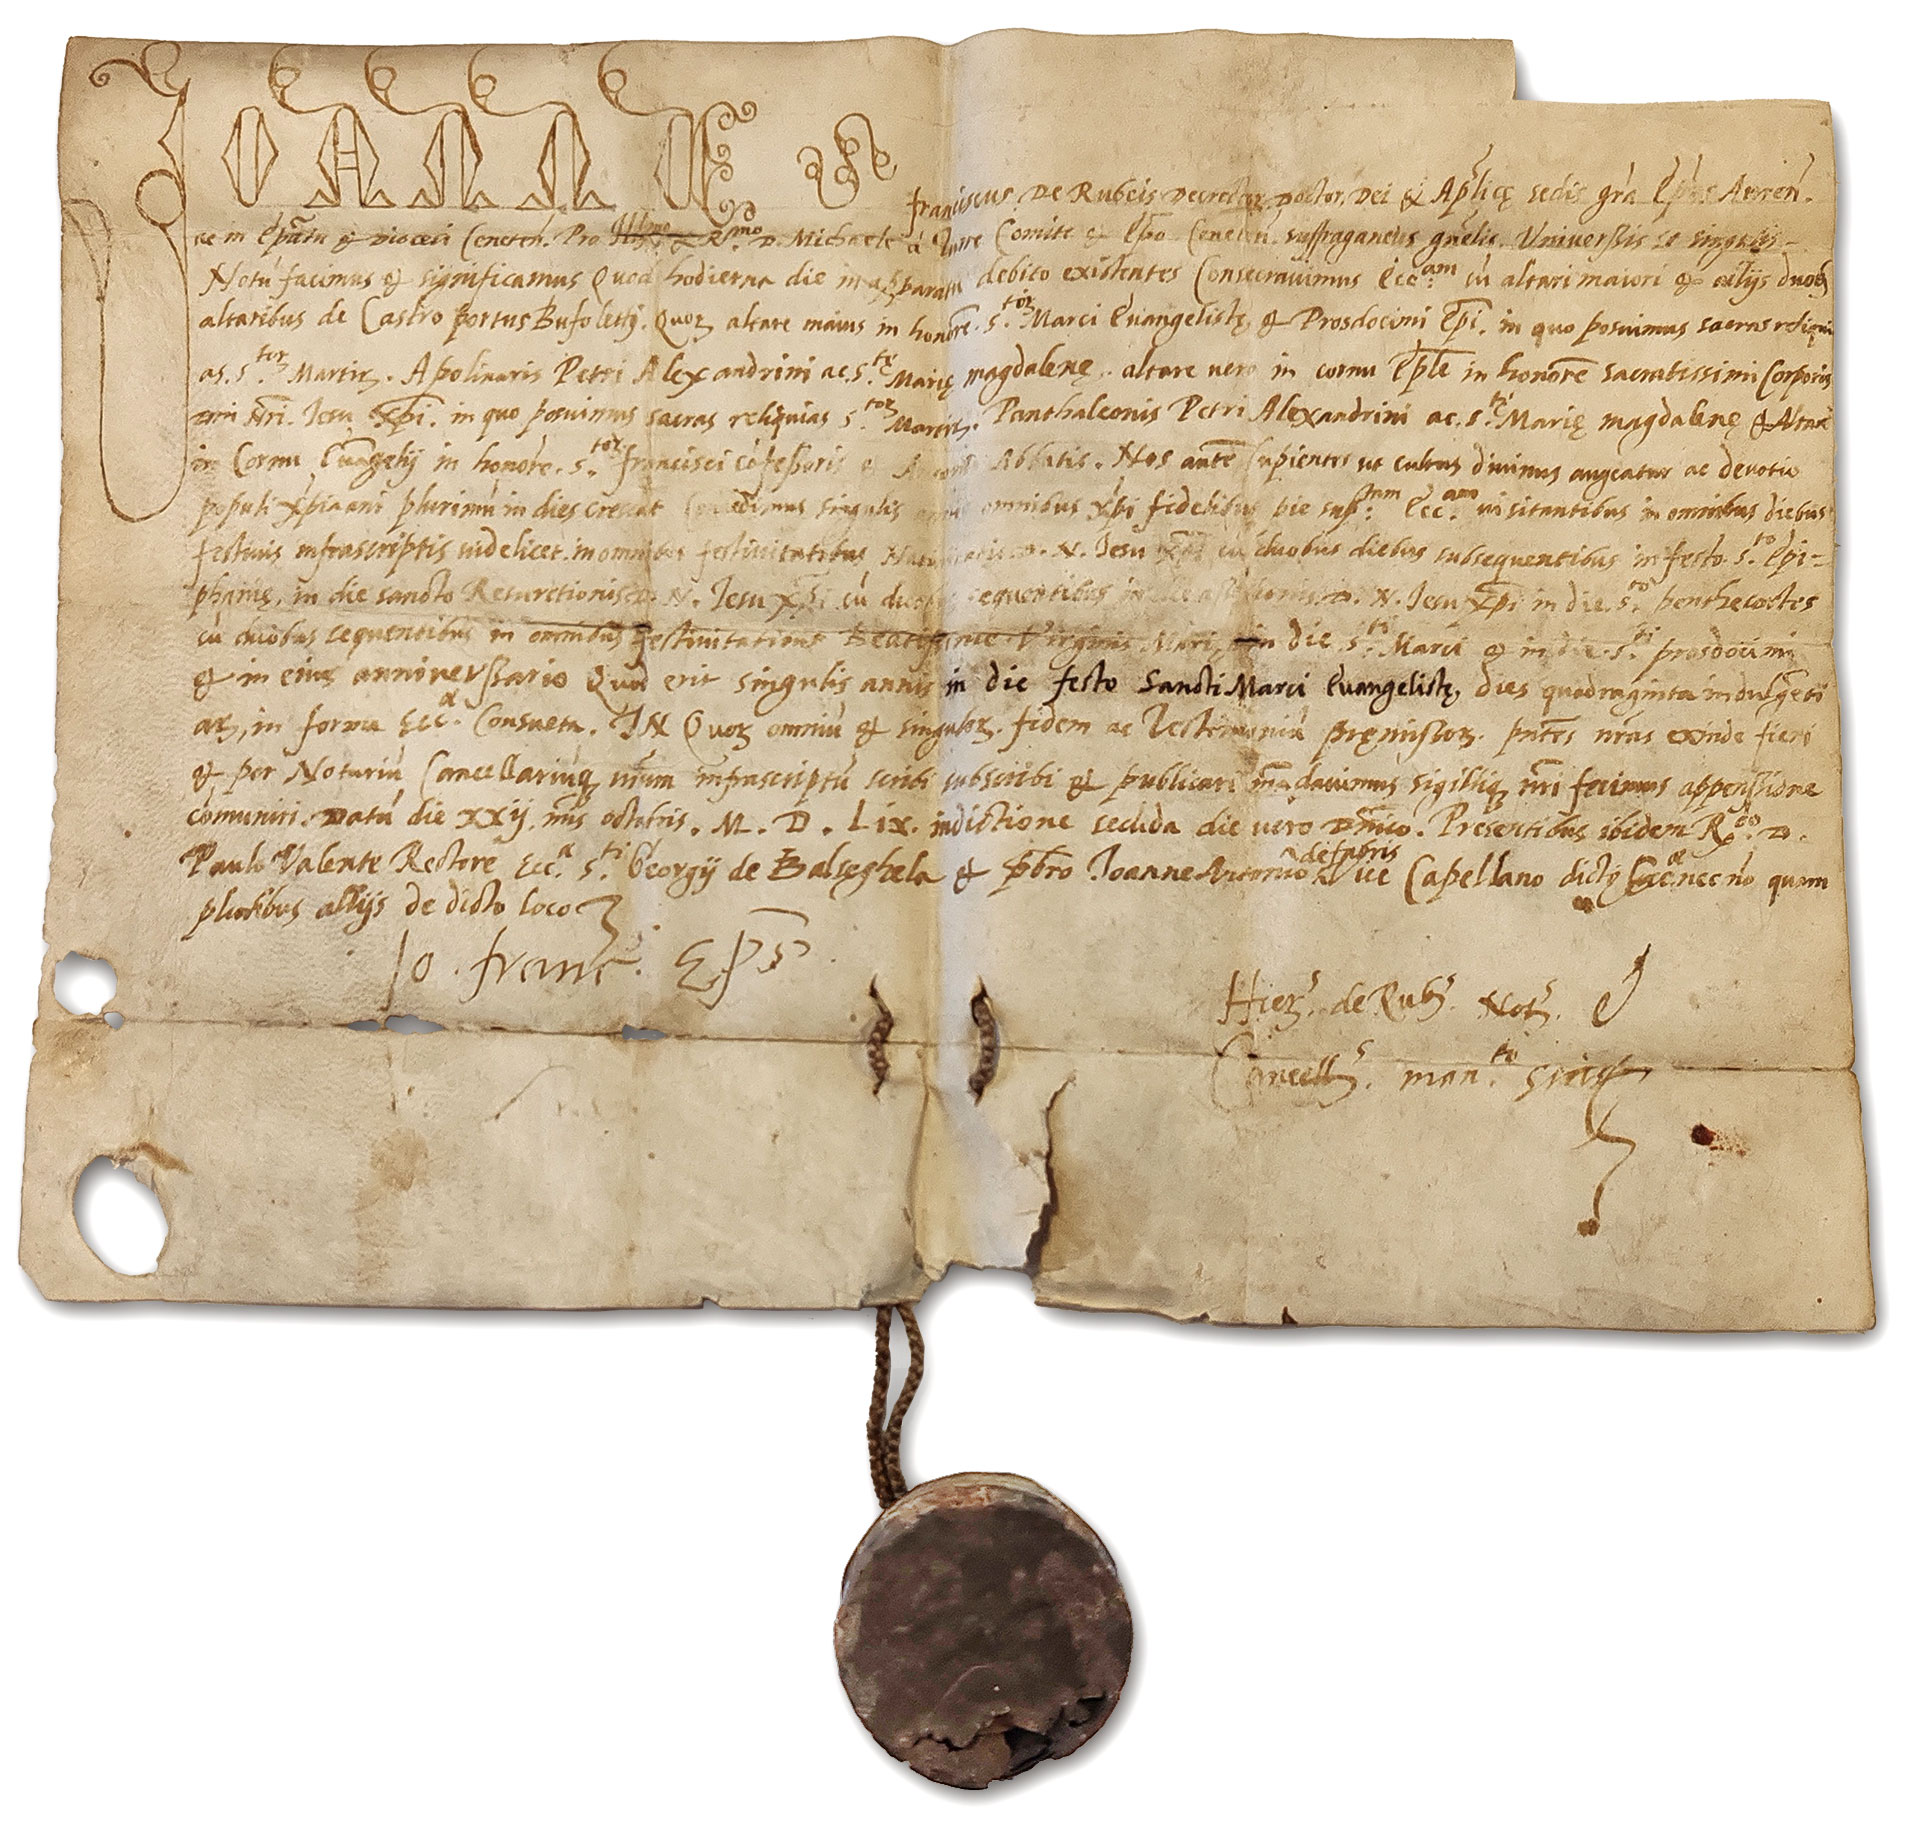 JOANNES
franciscus De Rubeis Decretor, Doctor, Dei & Ap̃licę sedis gr̃a Ep̃us Auren̄.
ac in Ep̃atu & Diocesi Ceneten̄. Pro Ill.mo & R.mo D. Michaele à Turre Comite & Ep̃o Ceneten̄ suffraganeus gñelis. Universis et singulis
Notū facimus & significamus Quod hodierna die in apparatu debito existentes Consecravimus Ecc.am cū altari maiori & alijs duobus
altaribus de Castro portus Bufoletij. Quorꝝ altare maius in honore. S.tor Marci Evangelistę, & Prosdocimi Ep̃i. in quo posuimus sacras reliqui
as. S.tor Martirꝝ. Apolinaris Petri Alexandrini ac. S.te Marię magdalenę. altare vero in cornu Ep̃le in honorē sacratissimi Corporis
Dñi Nr̃i. Jesu Xp̃i. in quo posuimus sacras reliquias S.tor Martirꝝ. Panthaleonis Petri Alexandrini ac. S.tę Marię magdalenę & Altare
in Cornu Evāgelij in honore. S.tor francisci cōfessoris & Abbatis. Nos autē Cupientes ut cultus divinus augeatur ac devotio
populi Xp̃iani plurimū in dies crescat Concedimus singulis annis omnibus Xp̃i fidelibus pie sup.tam Ecc.am visitantibus in omnibus diebus
festivis infrascriptis videlicet. in omnibus festivitatibus Nativitatis D. N. Jesu Xp̃i cū duobus diebus subsequentibus in festo. S.to Epi-
phanię, in die sancto Resurectionis D. N. Jesu Xp̃i cū duobus sequentibus in die D. N. Jesu Xp̃i in die. S.to penthecostes
cū duobus sequentibus in omnibus festivitatibus Beatissime Virginis Marię, in die S.ti Marci & in die. S.ti prosdocimi
& in eius anniverssario Quod erit singulis annis in die festo Sancti Marci Evangelistę, dies quadraginta indulgēti
arꝝ, in forma Ecc.ę Consueta. IN Quorꝝ omniū & singulorꝝ. fidem ac Testimoniū pręmissorꝝ. p̃ntes nr̃as exinde fieri
& per Notariū Cancellariūq nr̃um infrascriptū scribi subscribi & publicari mādavimus sigilliq nr̃i fecimus appenssione
comuniri. Datū die xxij. mẽs octobris. M. D. Lix. indictione secūda die vero Dñico. Presentibus ibidem R.do D.
Paulo Valente Rectore Ecc.ę S.ti Georgij de Balseghela & p̃bro Joanne Antonio de fabris Capellano dictę Ecc.ę nec nō quam
pluribus alijs de dicto loco
Jo. franc.s Ep̃s
Hierꝝ.s de Rub.s Not.s
Cancell.s man.to